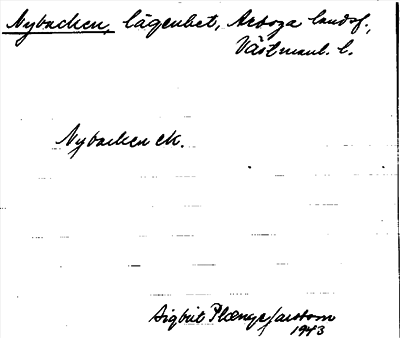 Nybacken, lägenhet, Arboga landsf.,
Västmanl. l.
Nybacken ek.
Sigbrit Plænge Jacobson
1943